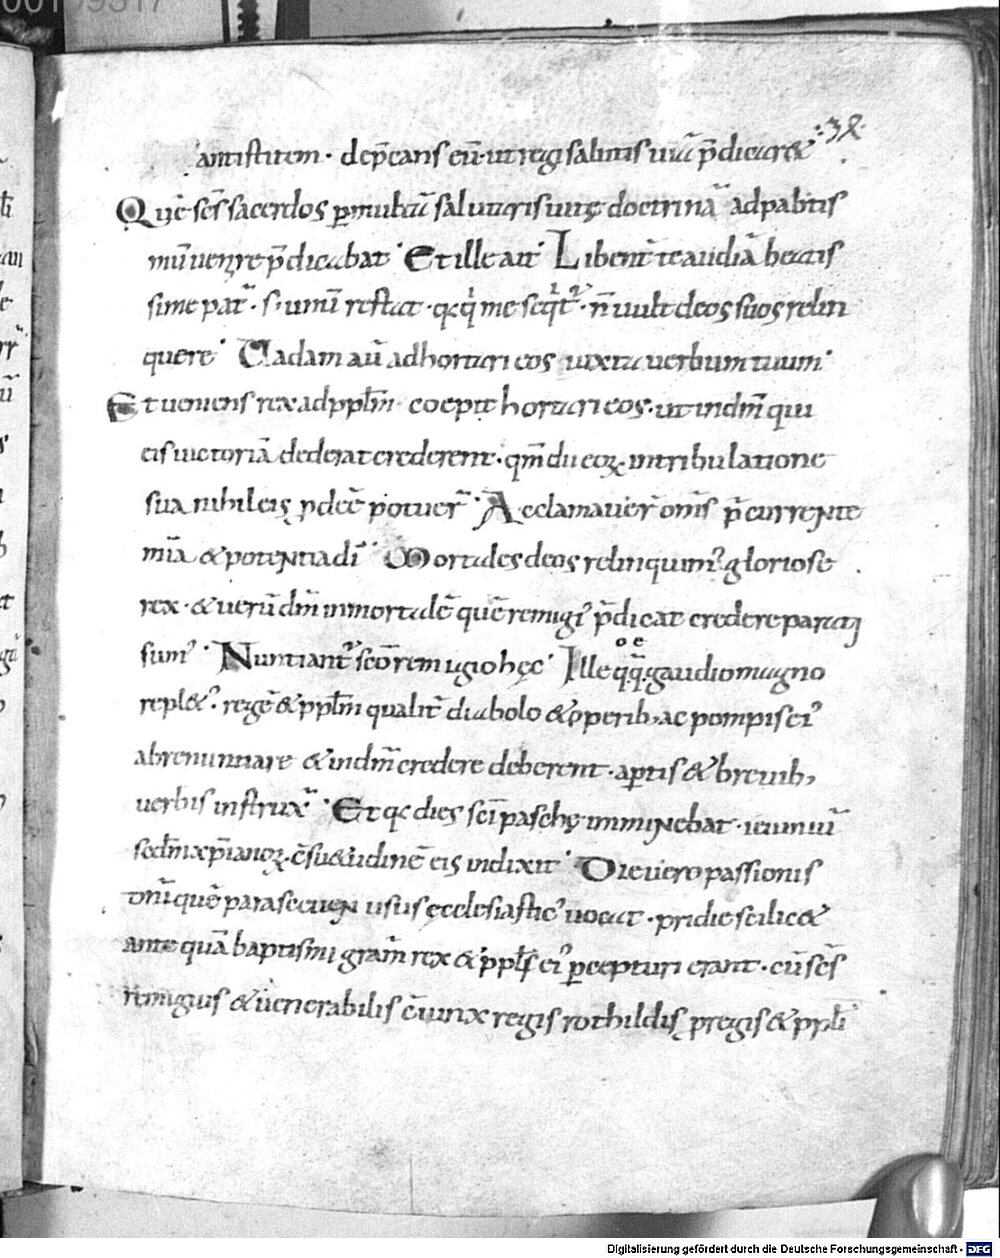 00199317
38
antistitem · dep̄cans eū · ut regi salutis uiā p̄dicar&
Quē sc̄s sacerdos p̱ multā salutaris uitę doctrinā ad palatiū
uenire p̄dicabat · Et ille ait · Libent̄ te audiā beatis
sime pat̄ · s; unū restat · q̱ q̇ me seq̇t̄ · n̄ uult deos suos relin
quere · Uadam aū adhortari eos iuxta uerbum tuum ·
Et ueniens rex ad ppl̄m coepit hortari eos · ut in dm̄ qui
eis uictoriā dederat crederent · qm̄ dii eoꝝ in tribulatione
sua nihil eis ꝓdeē potuer̄ · Acclamauer̄ om̄s p̄currente
mīa & potentia dī · Mortales deos relinquim᾽ gloriose
rex · & uerū dm̄ inmortalē quē remigi᾽ p̄dicat credere parati
sum᾽ · Nuntiant̄ sc̄o remigio hęc · Ille q̄q̄ · gaudio magno
replet᾽ · regē & ppl̄m qualit̄ diabolo & operib; ac pompis ei᾽
abrenuntiare & in dm̄ credere deberent · aptis & breuib;
uerbis instrux̄ · Et q̱ dies sc̄i paschę imminebat · ieiuniū
scdm̄ xp̄ianoꝝ c̄su&udinē eis indixit · Die uero passionis
dnī quē parasceuen usus ecclesiastic᾽ uocat · pridie scilic&
ante quā baptismi grām rex & ppl̄s ei᾽ p̱cepturi erant · cū sc̄s
remigius & uenerabilis c̄iunx regis rothildis, p̱ regis & ppl̄i
Digitalisierung gefördert durch die Deutsche Forschungsgemeinschaft - DFG